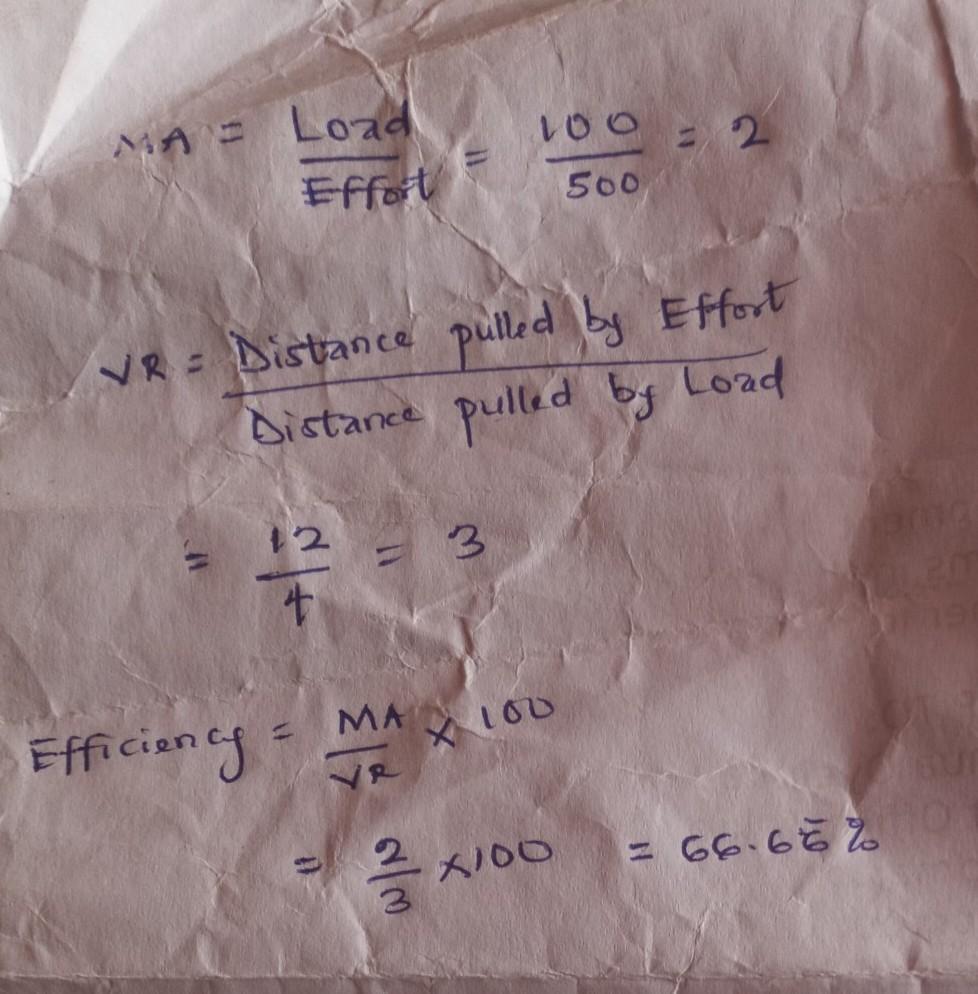 MA = Load / Effort = 100 / 500 = 2
VR = Distance pulled by Effort / Distance pulled by Load
= 12 / 4 = 3
Efficiency = MA / VR × 100
= 2 / 3 × 100 = 66.66%